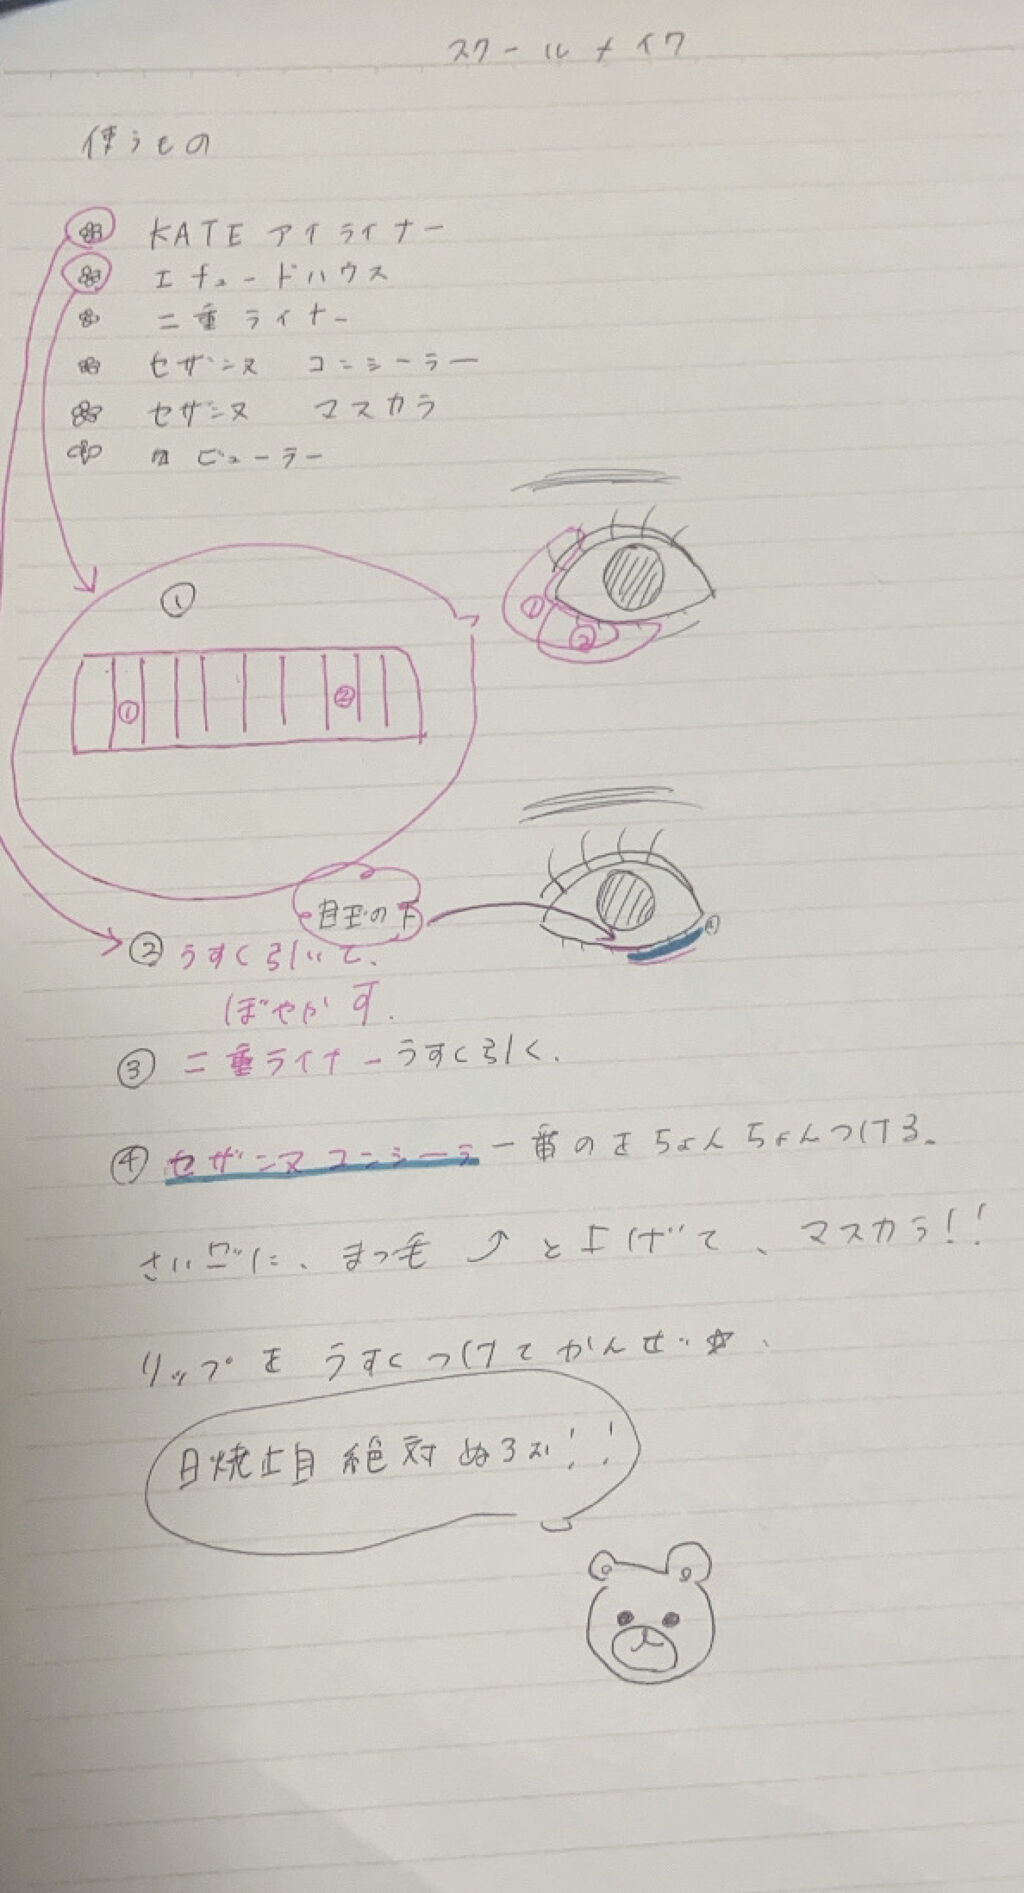 スクールメイク
使うもの
KATE アイライナー
エチュードハウス
二重ライナー
セザンヌ コンシーラー
セザンヌ マスカラ
ビューラー
①
①
②
①
②
目玉の下
④
② うすく引いて、
ぼやかす.
③ 二重ライナーうすく引く.
④ セザンヌコンシーラー番のをちょんちょんつける。
さいごに、まつ毛 ⤴ と上げて、マスカラ!!
リップを うすくつけてかんせい☆.
日焼止目 絶対 ぬるお!!